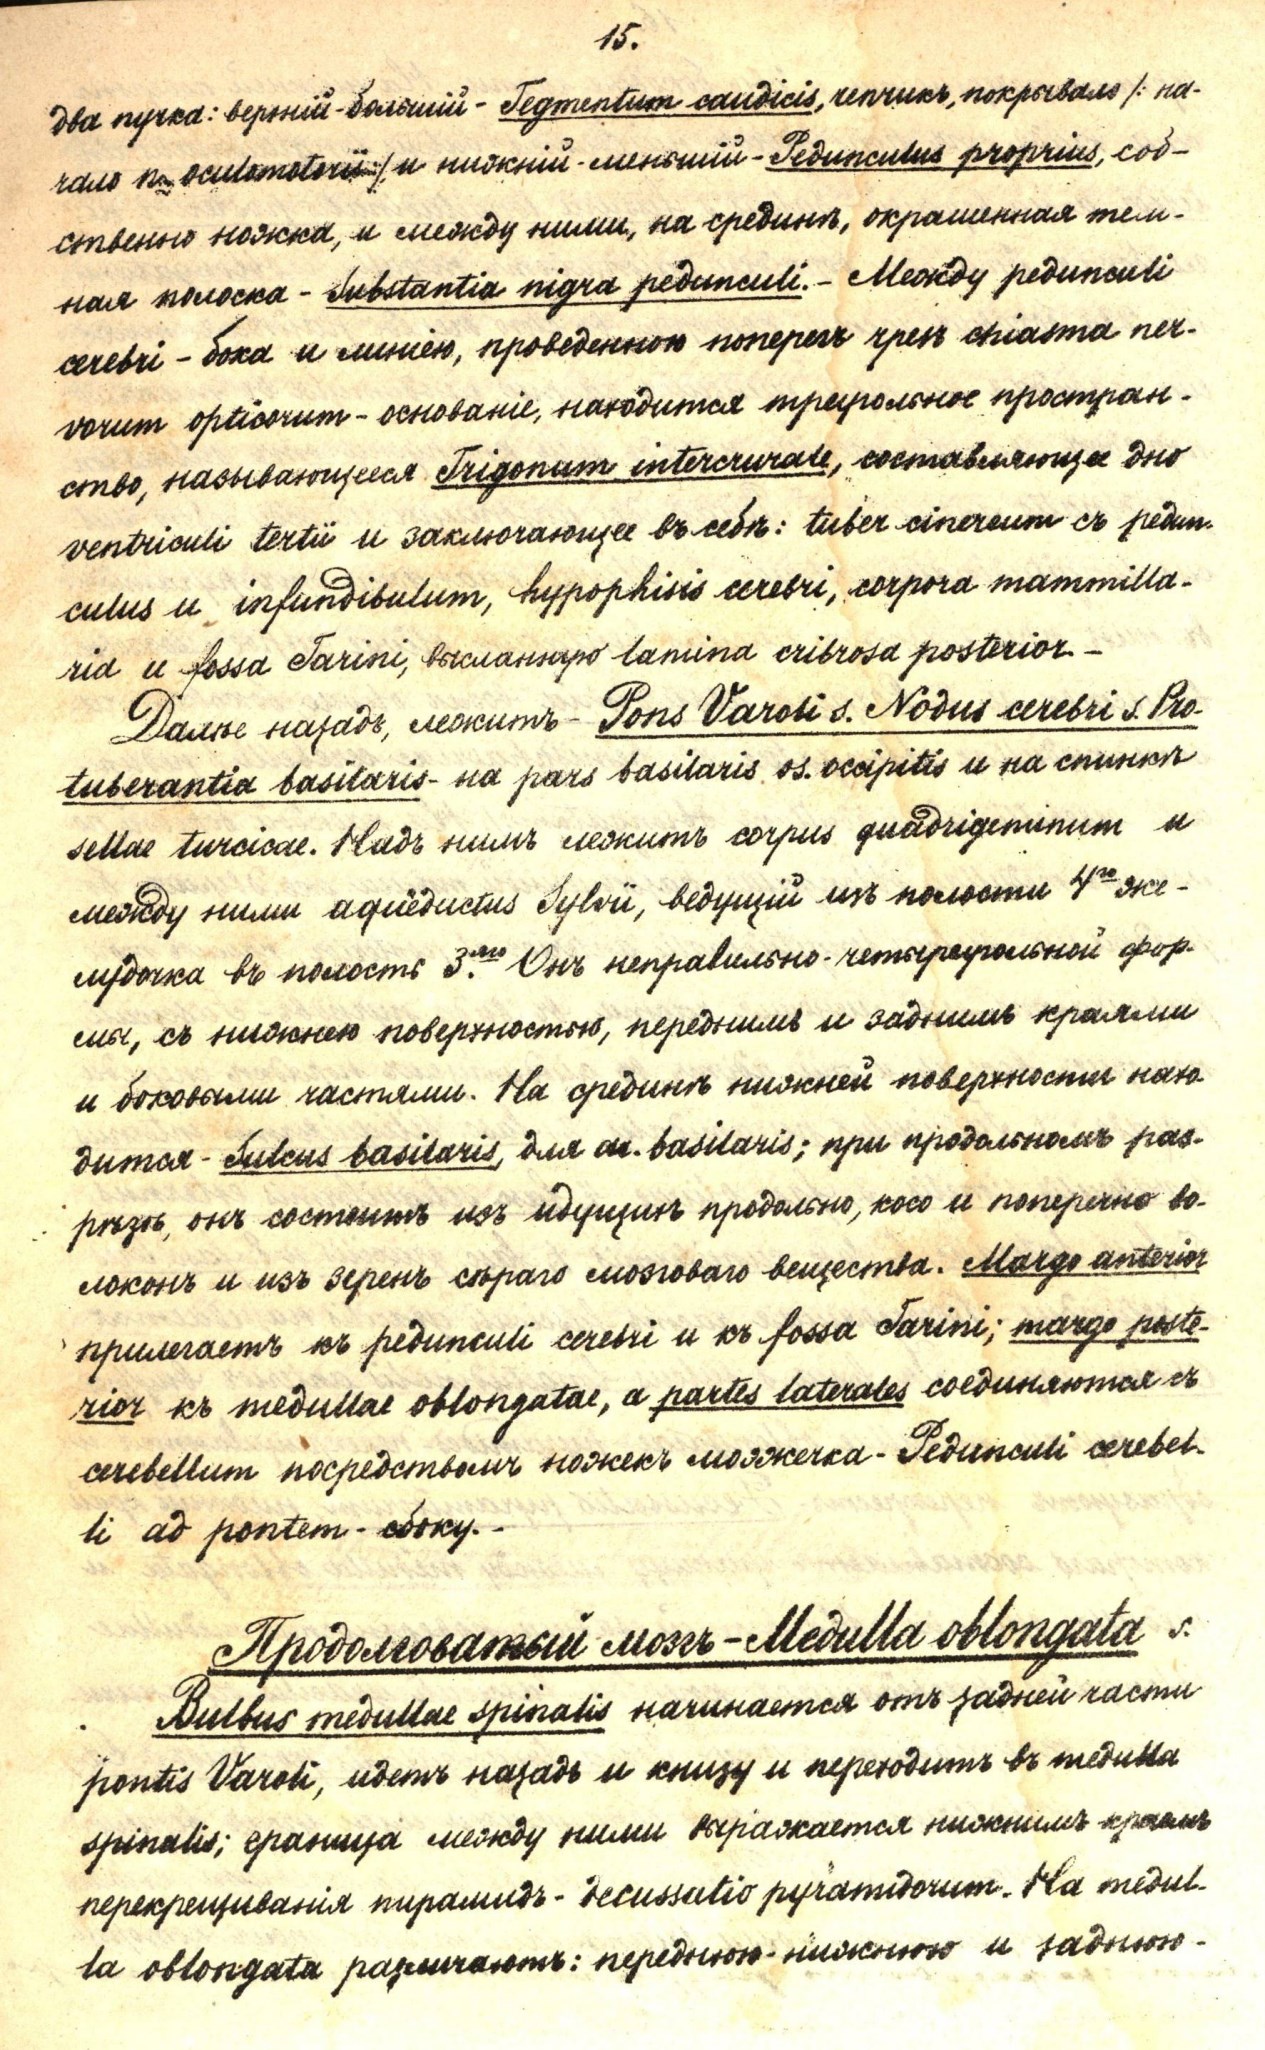 15.
два пучка: верхній-большій - Tegmentum caudicis, чепчикъ, покрывало /: на-
чало n. oculomotorii :/, и нижній-меньшій - Pedunculus proprius, соб-
ственно ножка, и между ними, на срединѣ, окрашенная тем-
ная полоска - Substantia nigra pedunculi. - Между pedunculi
cerebri - бока и линіею, проведенною поперегъ чрезъ chiasma ner-
vorum opticorum - основаніе, находится треугольное простран-
ство, называющееся Trigonum intercrurale, составляющее дно
ventriculi tertii и заключающее въ себѣ: tuber cinereum съ pedun-
culus и infundibulum, hypophisis cerebri, corpora mammilla-
ria и fossa Tarini, выстланную lamina cribrosa posterior. -
Далѣе назадъ, лежитъ - Pons Varoli s. Nodus cerebri s. Pro-
tuberantia basilaris - на pars basilaris os. occipitis и на спинкѣ
sellae turcicae. Надъ нимъ лежитъ corpus quadrigeminum и
между ними aquëductus Sylvii, ведущій изъ полости 4го же-
лудочка въ полость 3.яго Онъ неправильно-четыреугольной фор-
мы, съ нижнею поверхностью, переднимъ и заднимъ краями
и боковыми частями. На срединѣ нижней поверхности нахо-
дится - Sulcus basilaris, для ar. basilaris; при продольномъ раз-
рѣзѣ, онъ состоитъ изъ идущихъ продольно, косо и поперечно во-
локонъ и изъ зеренъ сѣраго мозговаго вещества. Margo anterior
прилегаетъ къ pedunculi cerebri и къ fossa Tarini; margo poste-
rior къ medullae oblongatae, а partes laterales соединяются съ
cerebellum посредствомъ ножекъ мозжечка - Pedunculi cerebel-
li ad pontem - сбоку. -
Продолговатый мозгъ - Medulla oblongata s.
Bulbus medullae spinalis начинается отъ задней части
pontis Varoli, идетъ назадъ и книзу и переходитъ въ medulla
spinalis; граница между ними выражается нижнимъ краемъ
перекрещиванія пирамидъ - decussatio pyramidorum. На medul-
la oblongata различаютъ: переднюю-нижнюю и заднюю-